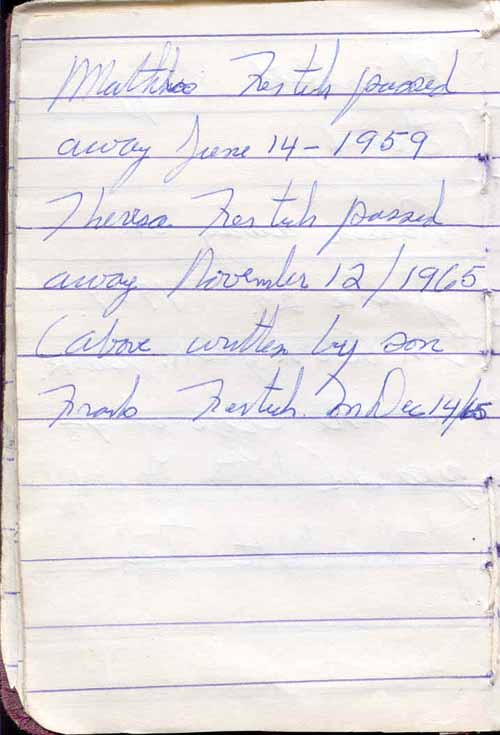 Mathias Fertich passed
away June 14 - 1959
Theresa Fertich passed
away November 12/1965
(above written by son
Frank Fertich. On Dec 14/65